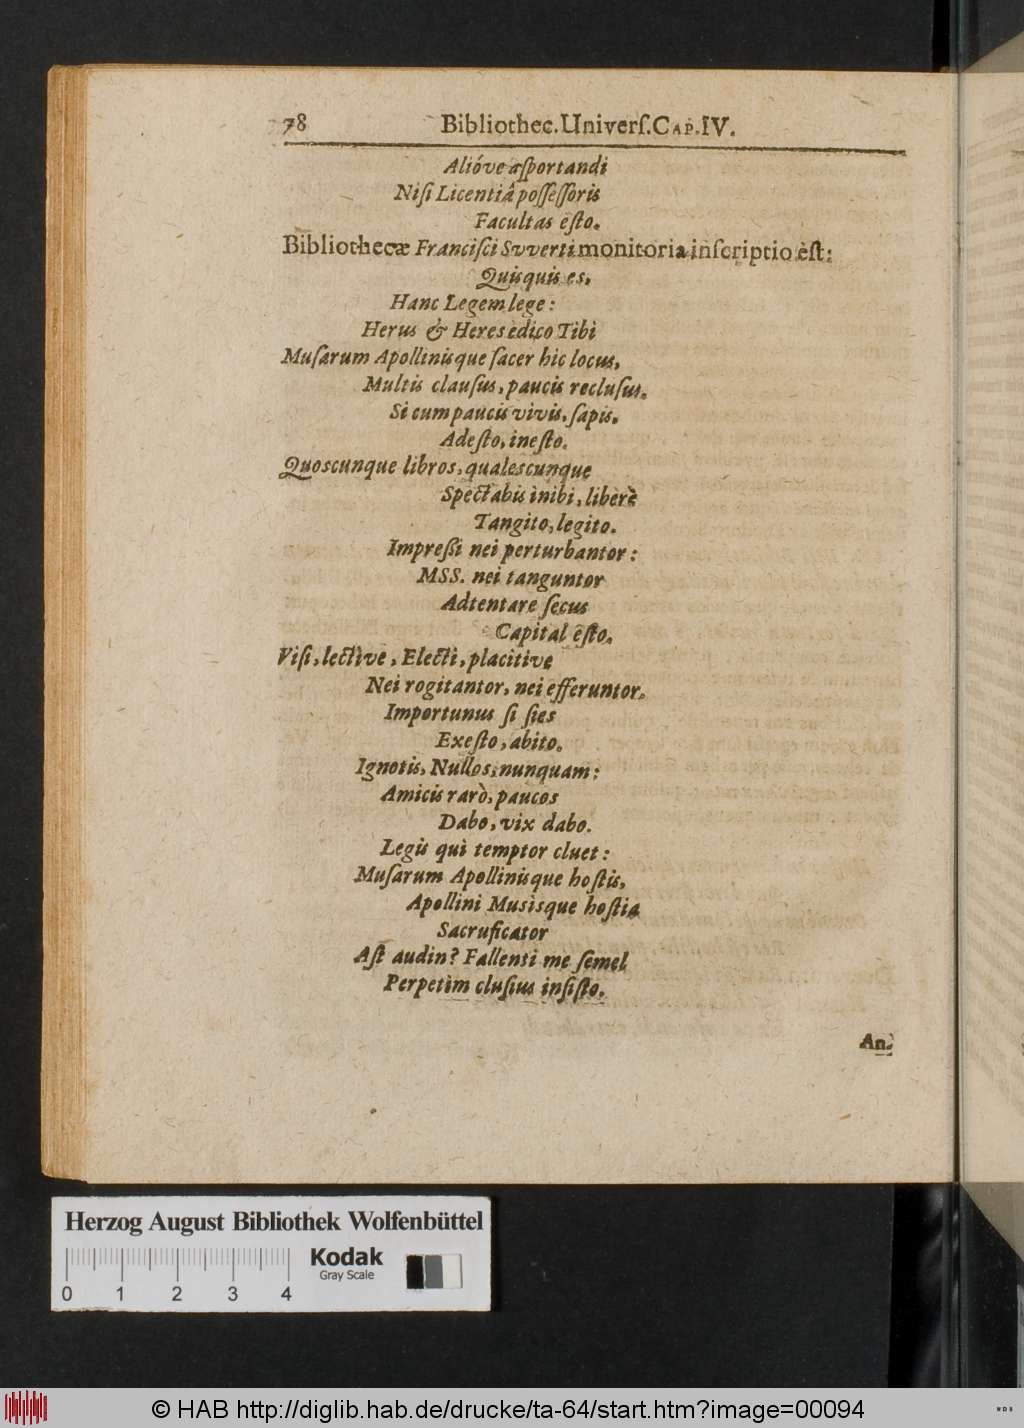 78 Bibliothec.Univerſ.CAP.IV.
Alióve aſportandi
Niſi Licentiâ poſſeſſoris
Facultas eſto.
Bibliothecæ Franciſci Svverti monitoria inſcriptio eſt:
Quisquis es,
Hanc Legem lege:
Herus & Heres edico Tibi
Muſarum Apollinisque ſacer hic locus,
Multis clauſus, paucis recluſus.
Si cum paucis vivis, ſapis.
Adeſto, ineſto.
Quoscunque libros, qualescunque
Spectabis inibi, liberè
Tangito, legito.
Impreßi nei perturbantor:
MSS. nei tanguntor
Adtentare ſecus
Capital eſto.
Viſi, lectìve, Electi, placitive
Nei rogitantor, nei efferuntor.
Importunus ſi ſies
Exeſto, abito.
Ignotis, Nullos, nunquam:
Amicis rarò, paucos
Dabo, vix dabo.
Legis quì temptor cluet:
Muſarum Apollinisque hoſtis,
Apollini Musisque hoſtia
Sacruficator
Aſt audin? Fallenti me ſemel
Perpetìm cluſius inſiſto.
An-
Herzog August Bibliothek Wolfenbüttel
Kodak
Gray Scale
0 1 2 3 4
© HAB http://diglib.hab.de/drucke/ta-64/start.htm?image=00094